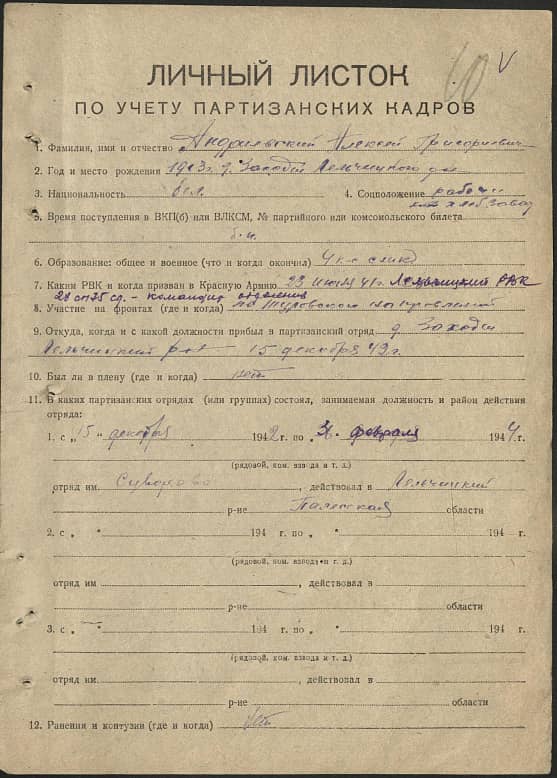 V
ЛИЧНЫЙ ЛИСТОК
ПО УЧЕТУ ПАРТИЗАНСКИХ КАДРОВ
1. Фамилия, имя и отчество Алексей Григорьевич
2. Год и место рождения 1913 г. д. Заходы Лельчицкого р-на
3. Национальность бел. 4. Соцположение рабочи
хлебзавод
5. Время поступления в ВКП(б) или ВЛКСМ, № партийного или комсомольского билета
б.п.
6. Образование: общее и военное (что и когда окончил) 4 кл.
7. Каким РВК и когда призван в Красную Армию 23 июня 41 г. Лельчицкий РВК
28 сп 75 сд. - командир отделения
8. Участие на фронтах (где и когда) по Туровского направлении
9. Откуда, когда и с какой должности прибыл в партизанский отряд д. Заходы
Лельчицкий р-н 15 декабря 42 г.
10. Был ли в плену (где и когда) нет
11. В каких партизанских отрядах (или группах) состоял, занимаемая должность и район действия
отряда:
1. с „15 „ декабря 1942 г. по „ февраля 1944 г.
(рядовой, ком. взвода и т. д.)
отряд им. Суворова , действовал в Лельчицкий
р-не Полесская области
2. с „ “ 194 г. по „ “ 194 г.
(рядовой, ком. взвода и т. д.)
отряд им , действовал в
р-не области
3. с „ “ 194 г. по „ “ 194 г.
(рядовой, ком. взвода и т. д.)
отряд им. , действовал в
р-не области
12. Ранения и контузии (где и когда) нет